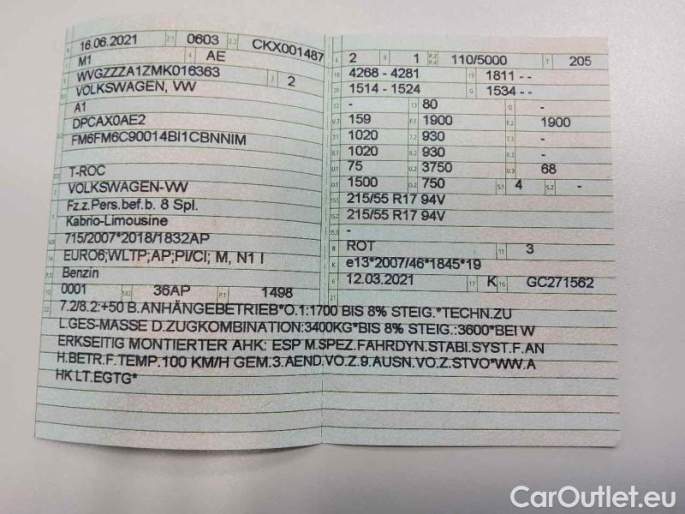 16.06.2021 0603 CKX001487
M1 AE
WVGZZZA1ZMK016363 2
VOLKSWAGEN, VW
A1
DPCAX0AE2
FM6FM6C90014BI1CBNNIM
T-ROC
VOLKSWAGEN-VW
Fz.z.Pers.bef.b. 8 Spl.
Kabrio-Limousine
715/2007*2018/1832AP
EURO6;WLTP;AP;PI/CI; M, N1 I
Benzin
0001 36AP 1498
2 1 110/5000 205
4268 - 4281 1811 - -
1514 - 1524 1534 - -
- 80 -
159 1900 1900
1020 930 -
1020 930 -
75 3750 68
1500 750 4 -
215/55 R17 94V
215/55 R17 94V
-
ROT 3
e13*2007/46*1845*19
12.03.2021 K GC271562
7.2/8.2:+50 B.ANHÄNGEBETRIEB*O.1:1700 BIS 8% STEIG.*TECHN.ZU
L.GES-MASSE D.ZUGKOMBINATION:3400KG*BIS 8% STEIG.:3600*BEI W
ERKSEITIG MONTIERTER AHK: ESP M.SPEZ.FAHRDYN.STABI.SYST.F.AN
H.BETR.F.TEMP.100 KM/H GEM.3.AEND.VO.Z.9.AUSN.VO.Z.STVO*WW.A
HK LT.EGTG*
CarOutlet.eu